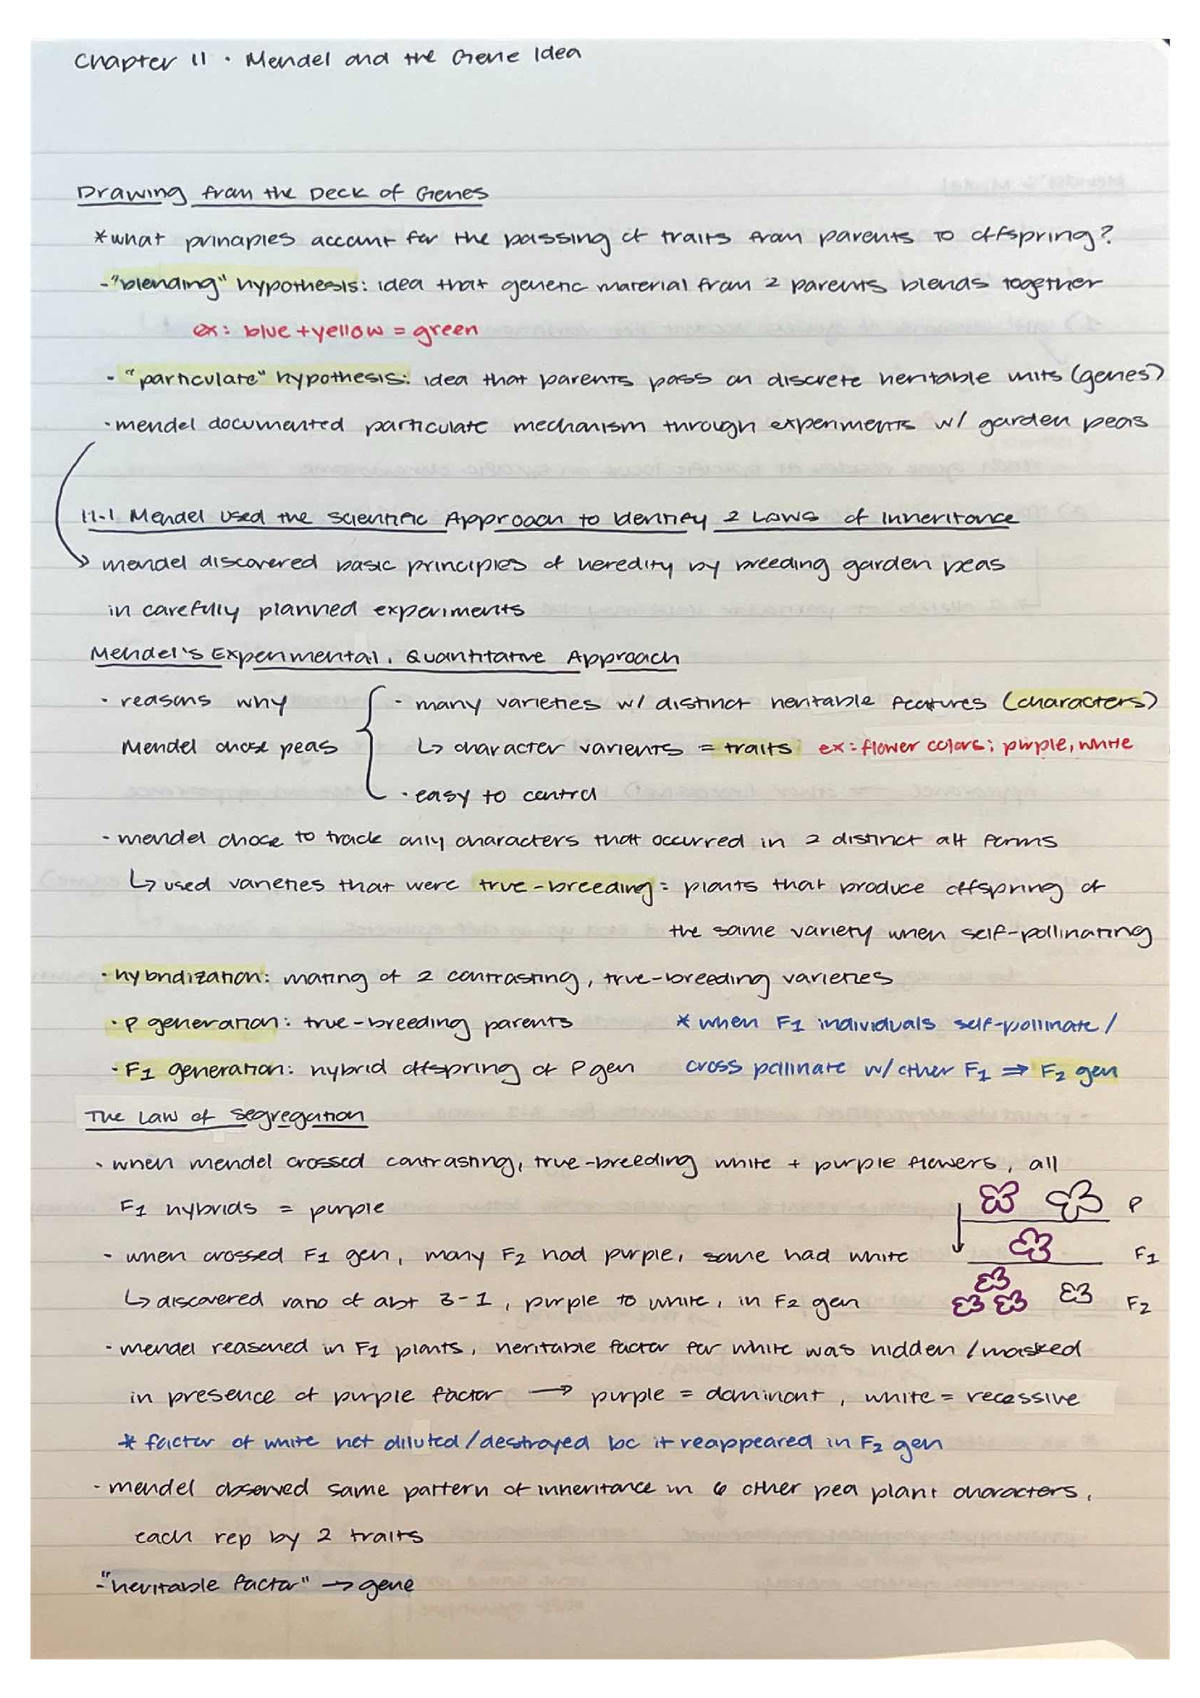 Chapter 11 · Mendel and the Gene Idea
Drawing from the Deck of Genes
*what principles account for the passing of traits from parents to offspring?
-"blending" hypothesis: idea that genetic material from 2 parents blends together
ex: blue + yellow = green
- "particulate" hypothesis: idea that parents pass on discrete heritable units (genes)
·mendel documented particulate mechanism through experiments w/ garden peas
11.1 Mendel Used the Scientific Approach to Identify 2 Laws of Inheritance
mendel discovered basic principles of heredity by breeding garden peas
in carefully planned experiments
Mendel's Experimental, Quantitative Approach
· reasons why
Mendel chose peas
· many varieties w/ distinct heritable features (characters)
↳ character varients = traits ex: flower colors: purple, white
· easy to control
· mendel chose to track only characters that occurred in 2 distinct alt forms
↳ used varieties that were true-breeding: plants that produce offspring of
the same variety when self-pollinating
· hybridization: mating of 2 contrasting, true-breeding varieties
· P generation: true-breeding parents
· F1 generation: hybrid offspring of P gen
* when F1 individuals self-pollinate /
cross pollinate w/ other F1 ⇒ F2 gen
The Law of Segregation
· when mendel crossed contrasting, true-breeding white + purple flowers, all
F1 hybrids = purple
· when crossed F1 gen, many F2 had purple, some had white
↳ discovered ratio of abt 3-1, purple to white, in F2 gen
P
F1
F2
· mendel reasoned in F1 plants, heritable factor for white was hidden / masked
in presence of purple factor → purple = dominant, white = recessive
* factor of white not diluted/destroyed bc it reappeared in F2 gen
· mendel observed same pattern of inheritance in 6 other pea plant characters,
each rep by 2 traits
-"heritable factor" → gene